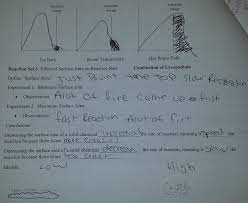 Ice Bath Room Temperature Hot Water Bath
Reaction Set 3: Effect of Surface Area on Reaction Rate Combustion of Lycopodium
Define "Surface Area" Just Burnt the top slow Reaction
Experiment 1: Minimum surface area
Observations: Alot of fire came up fast
Experiment 2: Maximum Surface Area
Observations: fast Reaction Alot of fire
Conclusions:
Increasing the surface area of a solid chemical increases the rate of reaction, meaning it speed the
reaction because there is are more collisions
Decreasing the surface area of a solid chemical decrease the rate of reaction, meaning it slow the
reaction because there is are less
Models: Low High